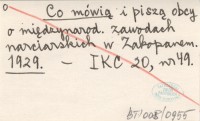 Co mówią i piszą obcy
o międzynarod. zawodach
narciarskich w Zakopanem.
1929. – IKC 20, nr 49.
AT/008/0955